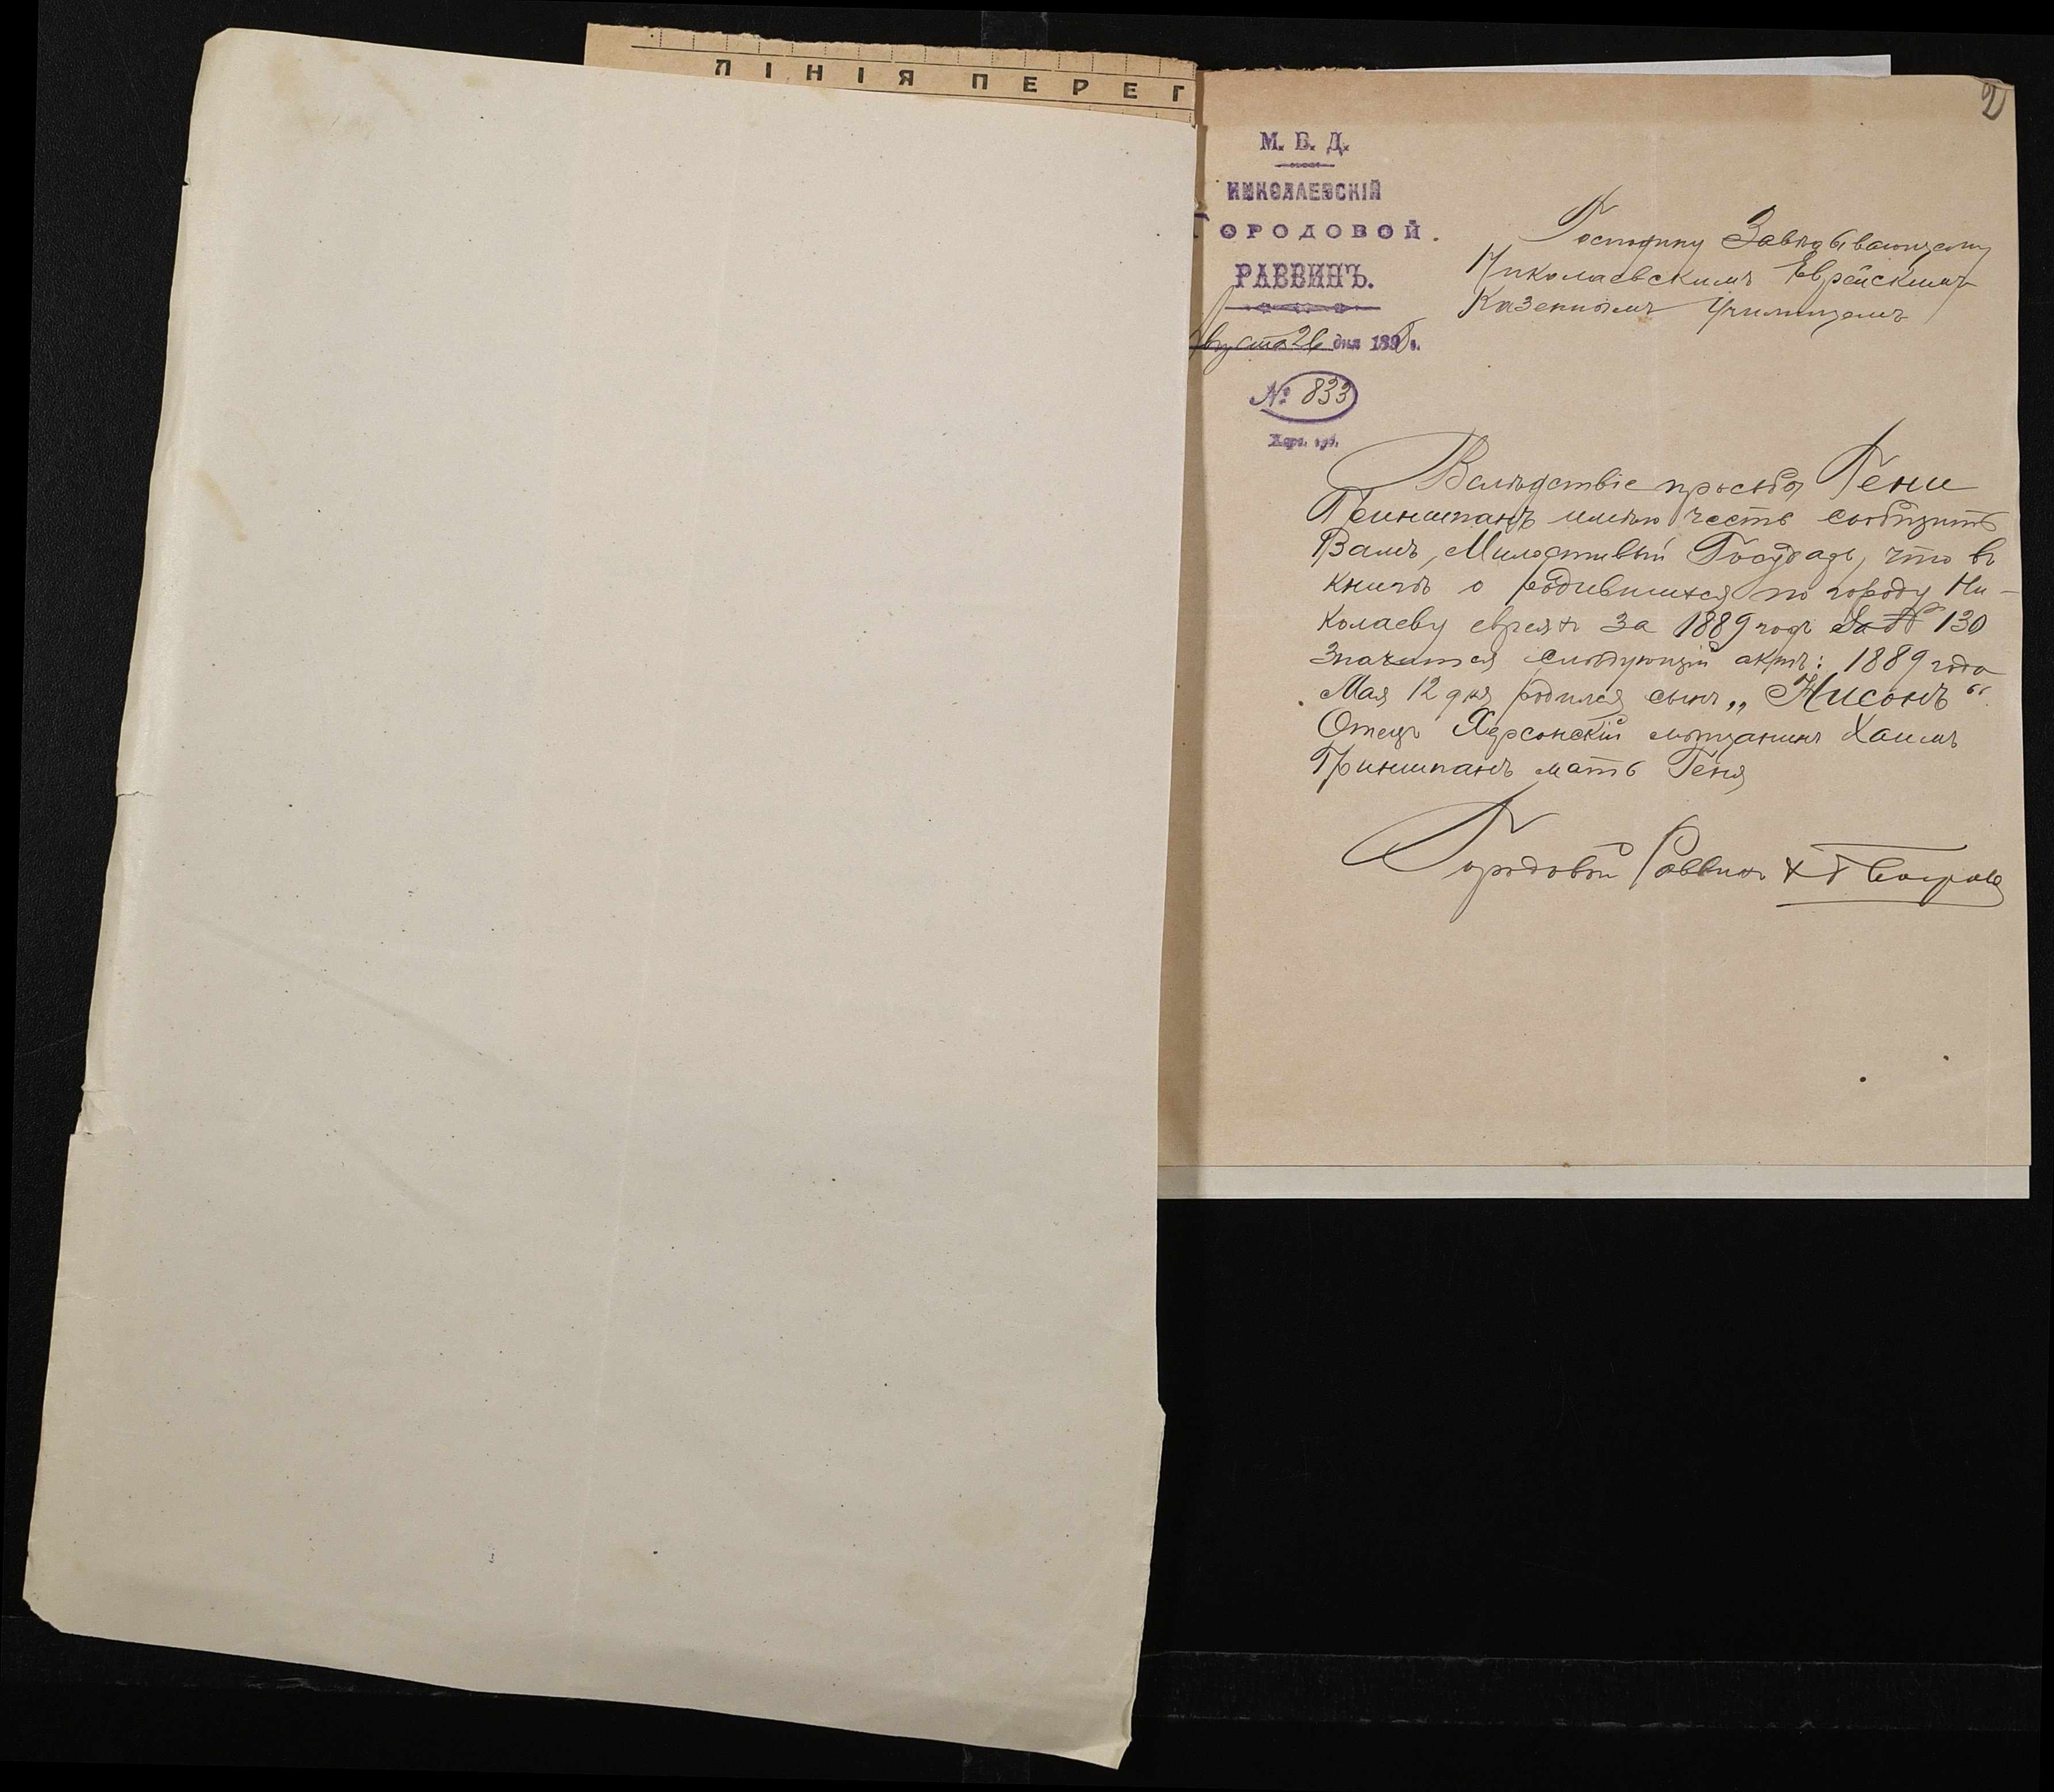 ЛІНІЯ ПЕРЕГ
2
М. В. Д.
НИКОЛАЕВСКІЙ
ГОРОДОВОЙ.
РАВВИНЪ.
Августа 26 дня 189 г.
№ 833
Херс. губ.
Господину Завѣдывающему
Николаевскимъ Еврейскимъ
Казеннымъ Училищемъ
Вслѣдствіе просьбы Гени
Гриншпанъ имѣю честь сообщить
Вамъ, Милостивый Государь, что въ
книгѣ о родившихся по городу Ни-
колаеву евреяхъ за 1889 годъ за № 130
значится слѣдующій актъ: 1889 года
Мая 12 дня родился сынъ „Нисонъ“
Отецъ Херсонскій мѣщанинъ Хаимъ
Гриншпанъ мать Геня
Городовой Раввинъ